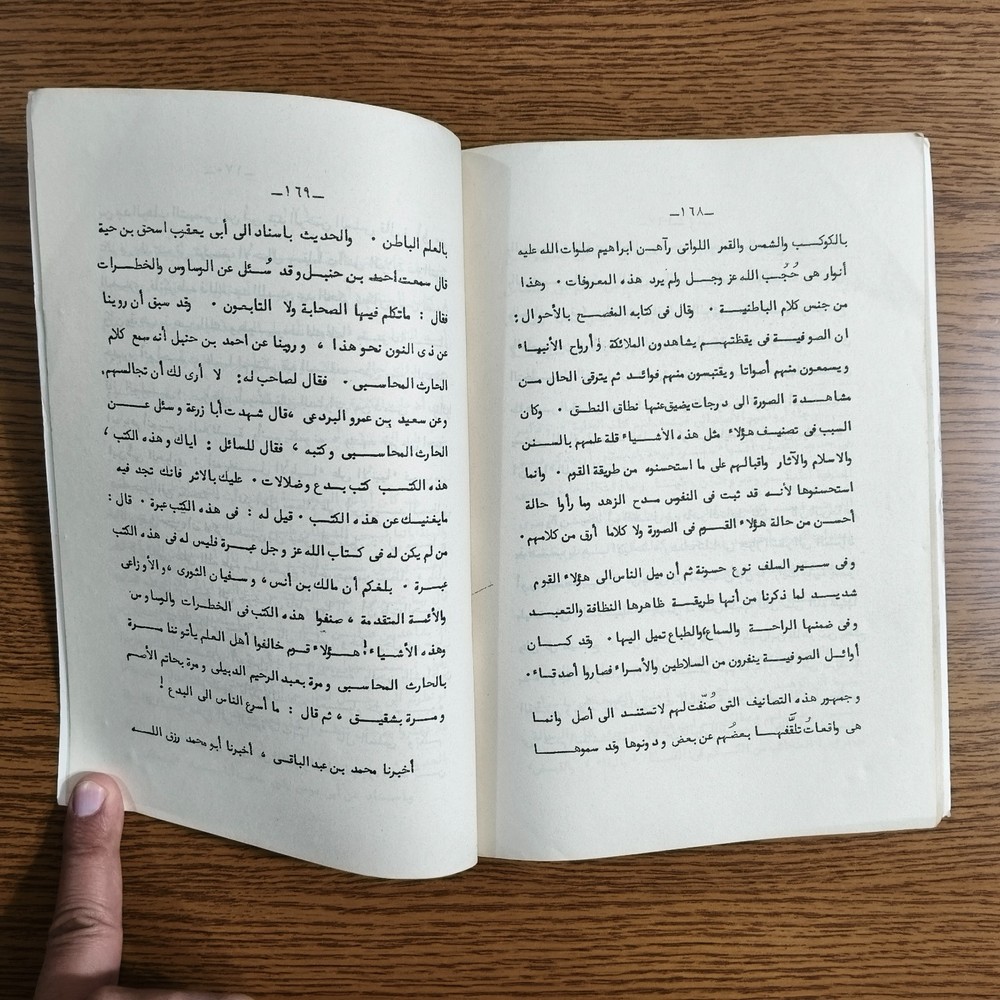 ـ١٦٨ـ
بالكوكب والشمس والقمر اللواتى رآهن ابراهيم صلوات الله عليه
أنوار هى حُجُب الله عز وجل ولم يرد هذه المعروفات ٠ وهذا
من جنس كلام الباطنية ٠ وقال فى كتابه المفصح بالأحوال :
ان الصوفية فى يقظتهم يشاهدون الملائكة وأرواح الأنبياء
ويسمعون منهم أصواتا ويقتبسون منهم فوائد ثم يترقى الحال من
مشاهدة الصورة الى درجات يضيق عنها نطاق النطق ٠ وكان
السبب فى تصنيف هؤلاء مثل هذه الأشياء قلة علمهم بالسنن
والاسلام والآثار واقبالهم على ما استحسنوه من طريقة القوم ٠ وانما
استحسنوها لأنه قد ثبت فى النفوس مدح الزهد وما رأوا حالة
أحسن من حالة هؤلاء القوم فى الصورة ولا كلاما أرق من كلامهم ٠
وفى سير السلف نوع خسونة ثم أن ميل الناس الى هؤلاء القوم
شديد لما ذكرنا من أنها طريقة ظاهرها النظافة والتعبد
وفى ضمنها الراحة والسماع والطباع تميل اليها ٠ وقد كان
أوائل الصوفية ينفرون من السلاطين والأمراء فصاروا أصدقاء ٠
وجمهور هذه التصانيف التى صُنّفت لهم لا تستند الى أصل وانما
هى واقعات تلقَّفها بعضُهم عن بعض ودونوها وقد سموها
ـ١٦٩ـ
بالعلم الباطن ٠ والحديث باسناد الى أبى يعقوب اسحق بن حية
قال سمعت احمد بن حنبل وقد سُئل عن الوساوس والخطرات
فقال : ماتكلم فيها الصحابة ولا التابعون ٠ وقد سبق أن روينا
عن ذى النون نحو هذا ، وروينا عن احمد بن حنبل أنه سمع كلام
الحارث المحاسبى ٠ فقال لصاحب له : لا أرى لك أن تجالسهم.
وعن سعيد بن عمرو البردعى ،قال شهدت أبا زرعة وسئل عن
الحارث المحاسبى وكتبه ، فقال للسائل : اياك وهذه الكتب ،
هذه الكتب كتب بدع وضلالات ٠ عليك بالاثر فانك تجد فيه
مايغنيك عن هذه الكتب ٠ قيل له : فى هذه الكتب عبرة ٠ قال :
من لم يكن له فى كتاب الله عز وجل عبرة فليس له فى هذه الكتب
عبرة ٠ بلغكم أن مالك بن أنس ، وسفيان الثورى ، والأوزاعى
والأئمة المتقدمة ، صنفوا هذه الكتب فى الخطرات والوساوس
وهذه الأشياء ! هؤلاء قوم خالفوا أهل العلم يأتوننا مرة
بالحارث المحاسبى ومرة بعبد الرحيم الدبيلى ومرة بحاتم الأصم
ومرة بشقيق ، ثم قال : ما أسرع الناس الى البدع !
أخبرنا محمد بن عبد الباقى ، أخبرنا أبو محمد رزق الله